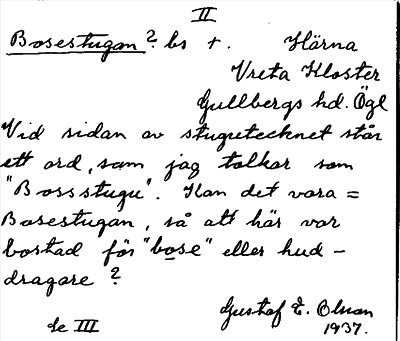 II
Bosestugan? bs +. Härna
Vreta Kloster
Gullbergs hd. Ögl
Vid sidan av stugutecknet står
ett ord, som jag tolkar som
"Bossstugu". Kan det vara =
Bosestugan, så att här var
bostad för "bose" eller hud-
dragare?
Gustaf E. Olsson
1937.
se III